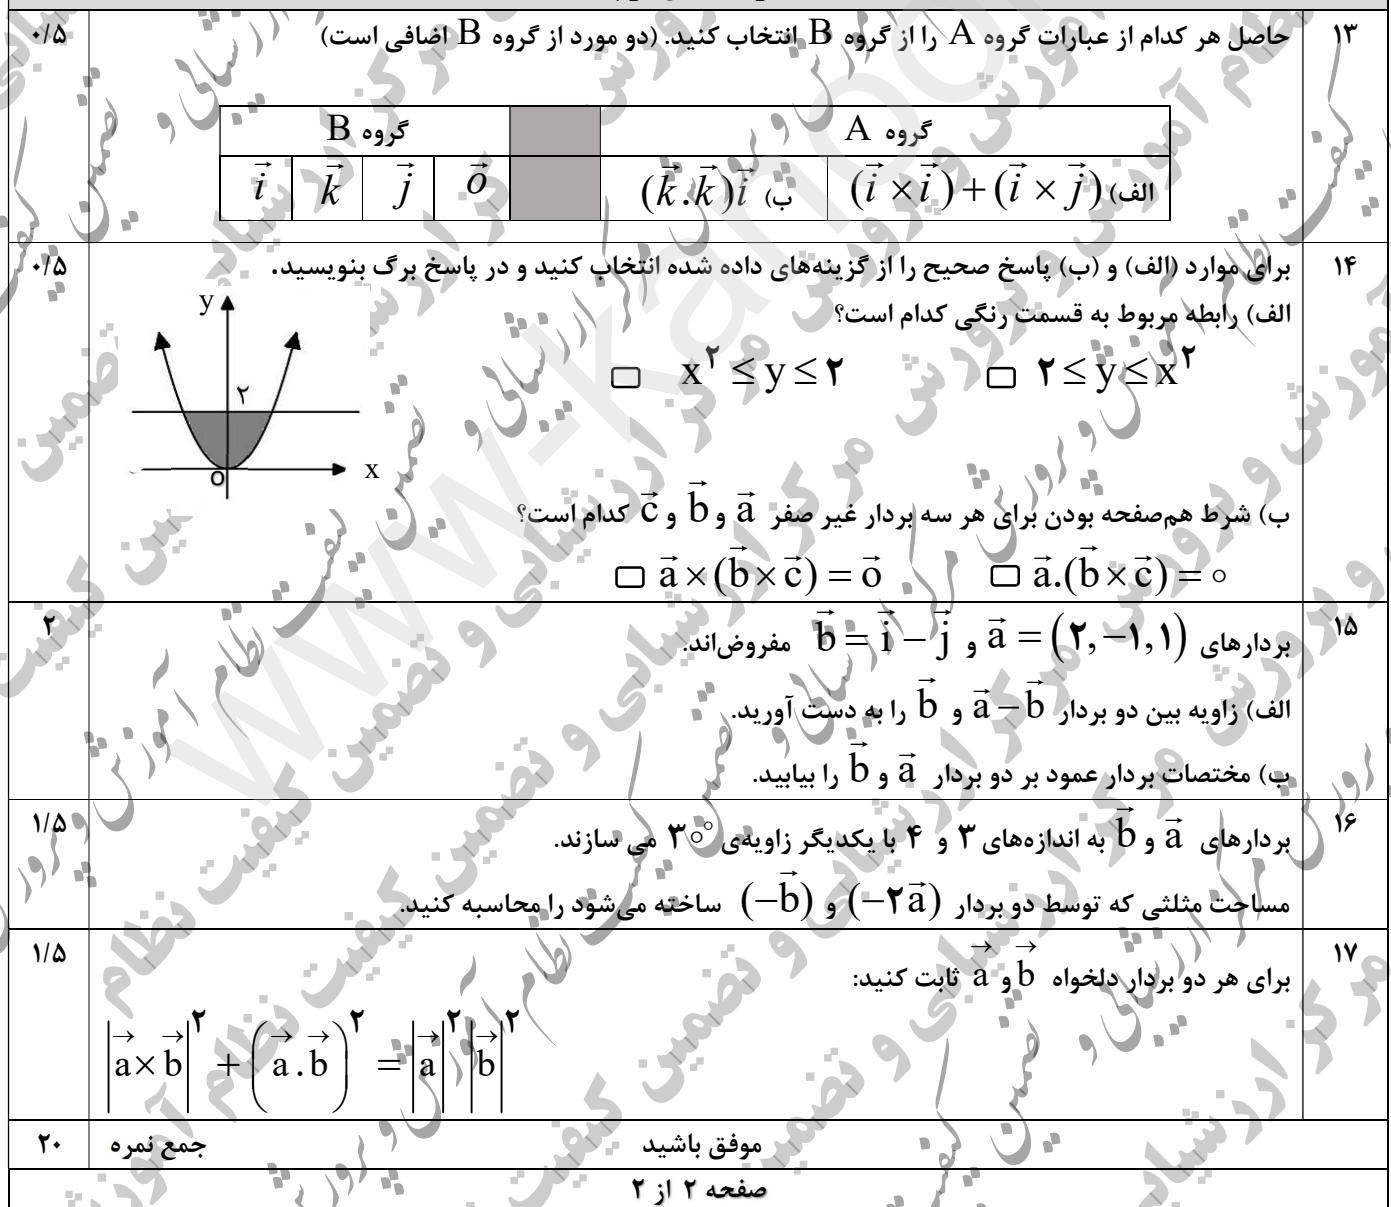 ۱۳ حاصل هر کدام از عبارات گروه A را از گروه B انتخاب کنید. (دو مورد از گروه B اضافی است) ۰/۵
گروه A گروه B
الف) (i⃗ × i⃗) + (i⃗ × j⃗) ب) (k⃗ . k⃗) i⃗ o⃗ j⃗ k⃗ i⃗
۱۴ برای موارد (الف) و (ب) پاسخ صحیح را از گزینه‌های داده شده انتخاب کنید و در پاسخ برگ بنویسید. ۰/۵
الف) رابطه مربوط به قسمت رنگی کدام است؟
□ ۲ ≤ y ≤ x^۲ □ x^۲ ≤ y ≤ ۲
y
۲
x
o
ب) شرط هم‌صفحه بودن برای هر سه بردار غیر صفر a⃗ و b⃗ و c⃗ کدام است؟
□ a⃗ . (b⃗ × c⃗) = ۰ □ a⃗ × (b⃗ × c⃗) = o⃗
۱۵ بردارهای a⃗ = (۲, −۱, ۱) و b⃗ = i⃗ − j⃗ مفروض‌اند. ۲
الف) زاویه بین دو بردار a⃗ − b⃗ و b⃗ را به دست آورید.
ب) مختصات بردار عمود بر دو بردار a⃗ و b⃗ را بیابید.
۱۶ بردارهای a⃗ و b⃗ به اندازه‌های ۳ و ۴ با یکدیگر زاویه‌ی ۳۰° می سازند. ۱/۵
مساحت مثلثی که توسط دو بردار (−۲a⃗) و (−b⃗) ساخته می‌شود را محاسبه کنید.
۱۷ برای هر دو بردار دلخواه b⃗ و a⃗ ثابت کنید: ۱/۵
|a⃗ × b⃗|^۲ + (a⃗ . b⃗)^۲ = |a⃗|^۲ |b⃗|^۲
موفق باشید جمع نمره ۲۰
صفحه ۲ از ۲
مرکز ارزشیابی و تضمین کیفیت نظام آموزش و پرورش